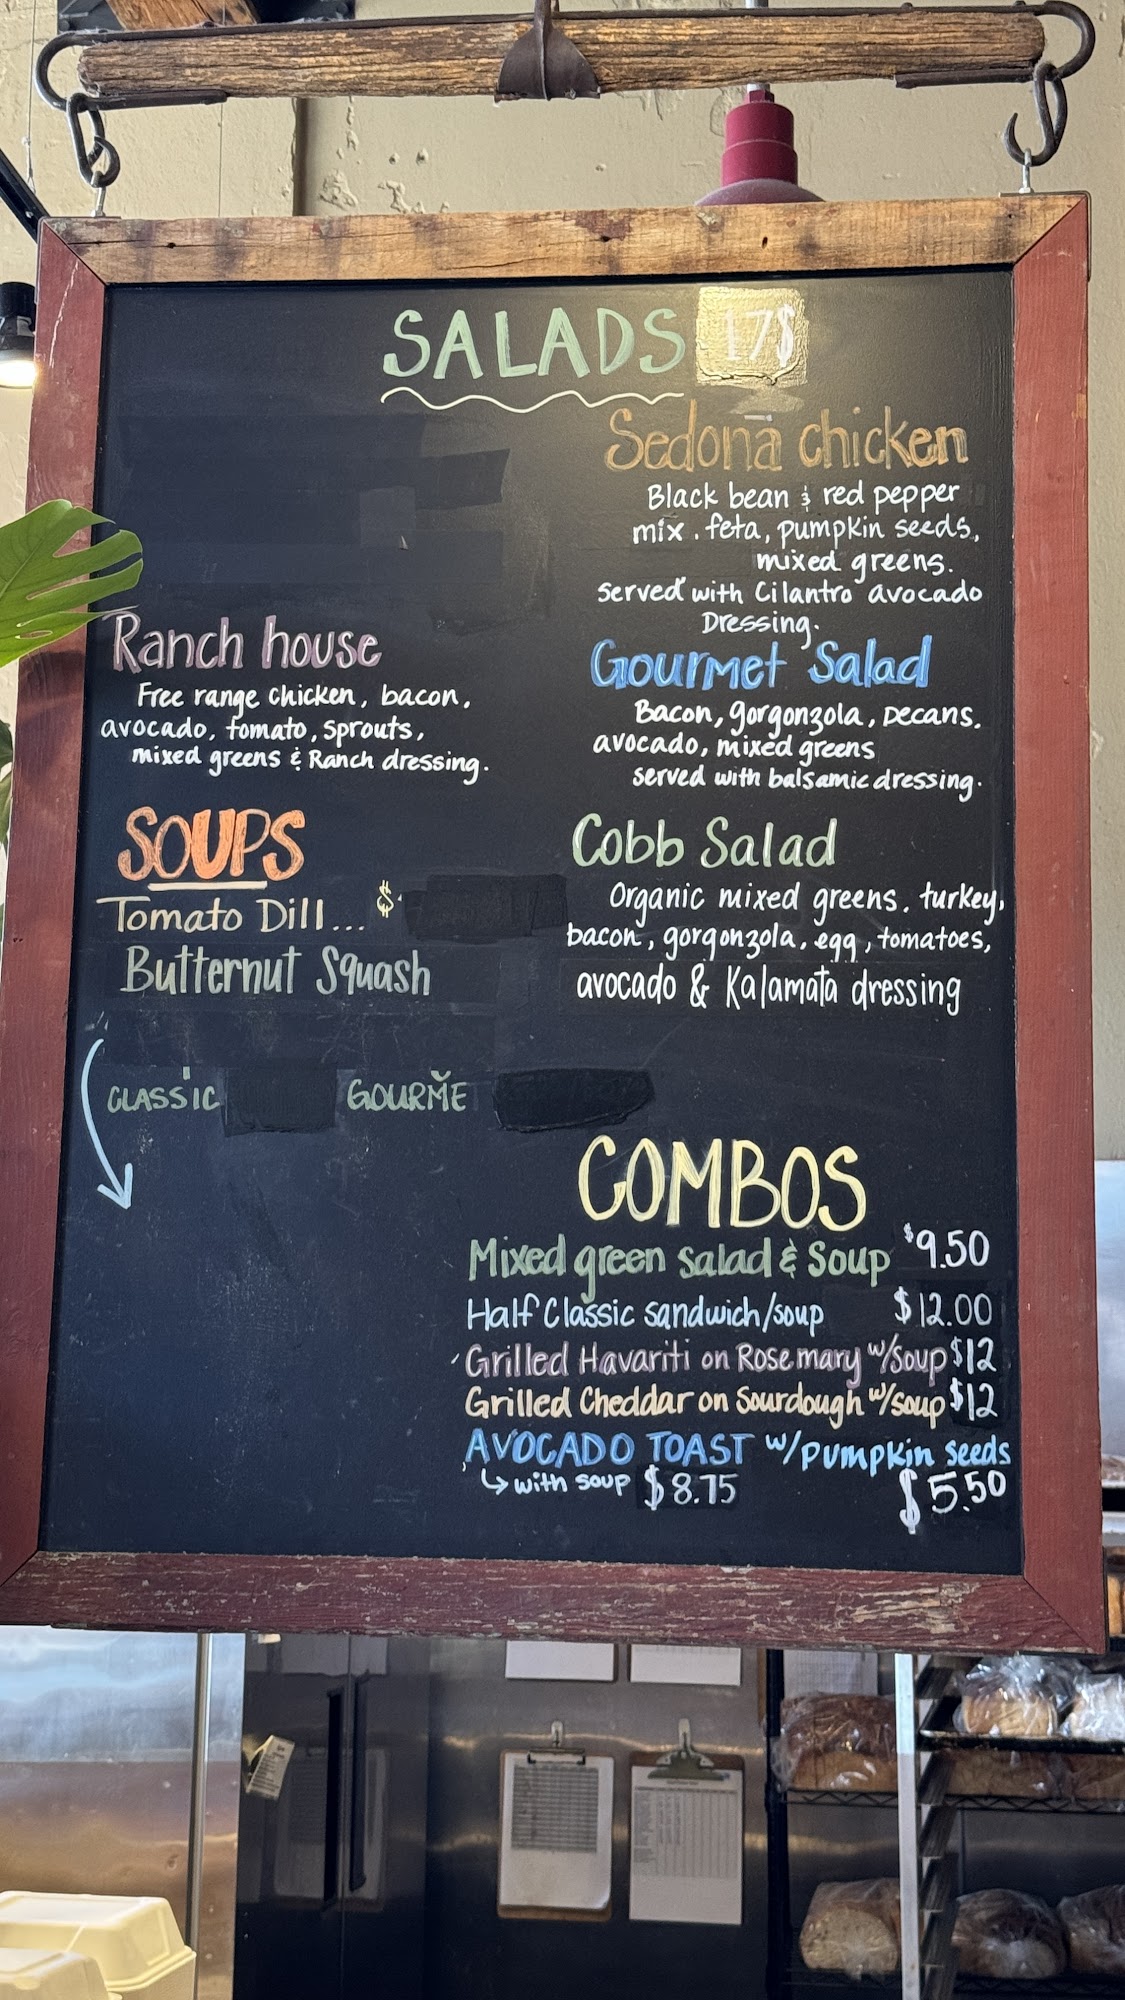 SALADS 17$
Sedona chicken
Black bean & red pepper
mix. feta, pumpkin seeds,
mixed greens.
served with Cilantro avocado
Dressing.
Ranch house
Free range chicken, bacon,
avocado, tomato, sprouts,
mixed greens & Ranch dressing.
Gourmet Salad
Bacon, gorgonzola, pecans.
avocado, mixed greens
served with balsamic dressing.
SOUPS
Tomato Dill... $
Butternut Squash
Cobb Salad
Organic mixed greens. turkey,
bacon, gorgonzola, egg, tomatoes,
avocado & Kalamata dressing
CLASSIC GOURME
COMBOS
Mixed green salad & Soup $9.50
Half Classic sandwich/soup $12.00
Grilled Havariti on Rosemary w/soup $12
Grilled Cheddar on Sourdough w/soup $12
AVOCADO TOAST w/pumpkin seeds
with soup $8.75 $5.50